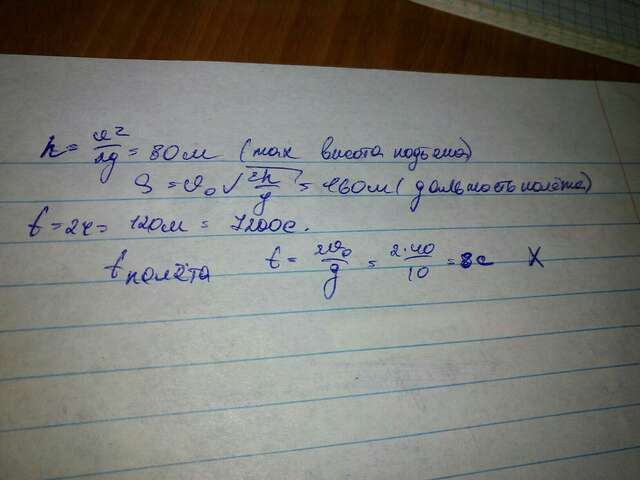 h = v²/2g = 80 м (max высота подъёма)
S = v₀√(2h/g) = 160 м (дальность полёта)
t = 2ч = 120м = 7200с.
t полёта t = 2v₀/g = 2·40/10 = 8с X